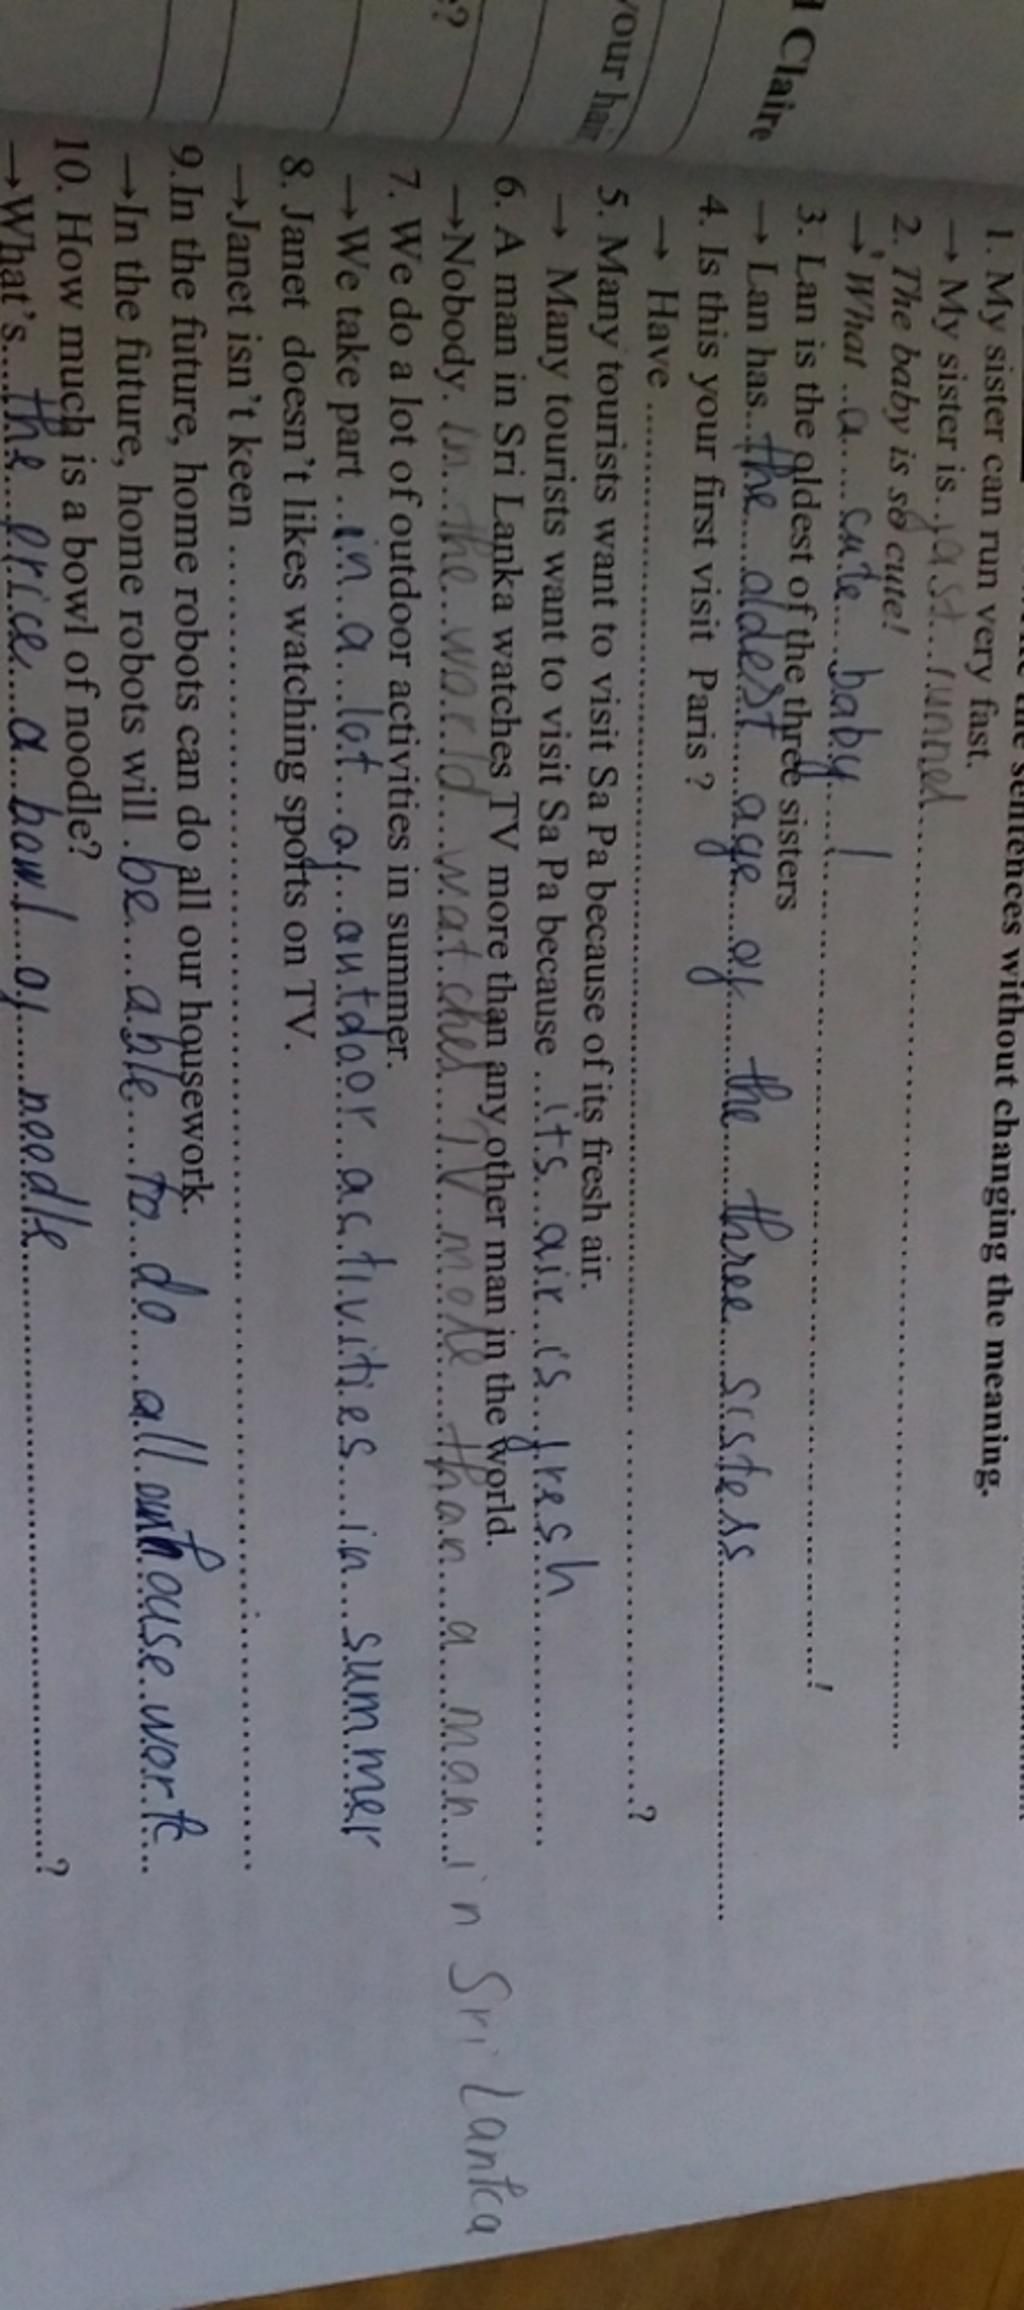 the sentences without changing the meaning.
1. My sister can run very fast.
→ My sister is..fast...runner
2. The baby is so cute!
→ What ..a.....cute....baby....!.......!
3. Lan is the oldest of the three sisters
→ Lan has...the.....oldest.....age.....of.....the.....three...sisters
4. Is this your first visit Paris ?
→ Have ...............?
5. Many tourists want to visit Sa Pa because of its fresh air.
→ Many tourists want to visit Sa Pa because ....its...air..is...fresh
6. A man in Sri Lanka watches TV more than any other man in the world.
→Nobody. in...the..world...watches....TV...more.....than...a...man...in Sri Lanka
7. We do a lot of outdoor activities in summer.
→We take part ..in..a...lot...of..outdoor activities...in...summer
8. Janet doesn't likes watching sports on TV.
→Janet isn't keen ...............
9.In the future, home robots can do all our housework.
→In the future, home robots will .be....able....to..do...all our house work...
10. How much is a bowl of noodle?
→What's....the....price....a...bowl....of.....noodle...............?
l Claire
your hair
e?